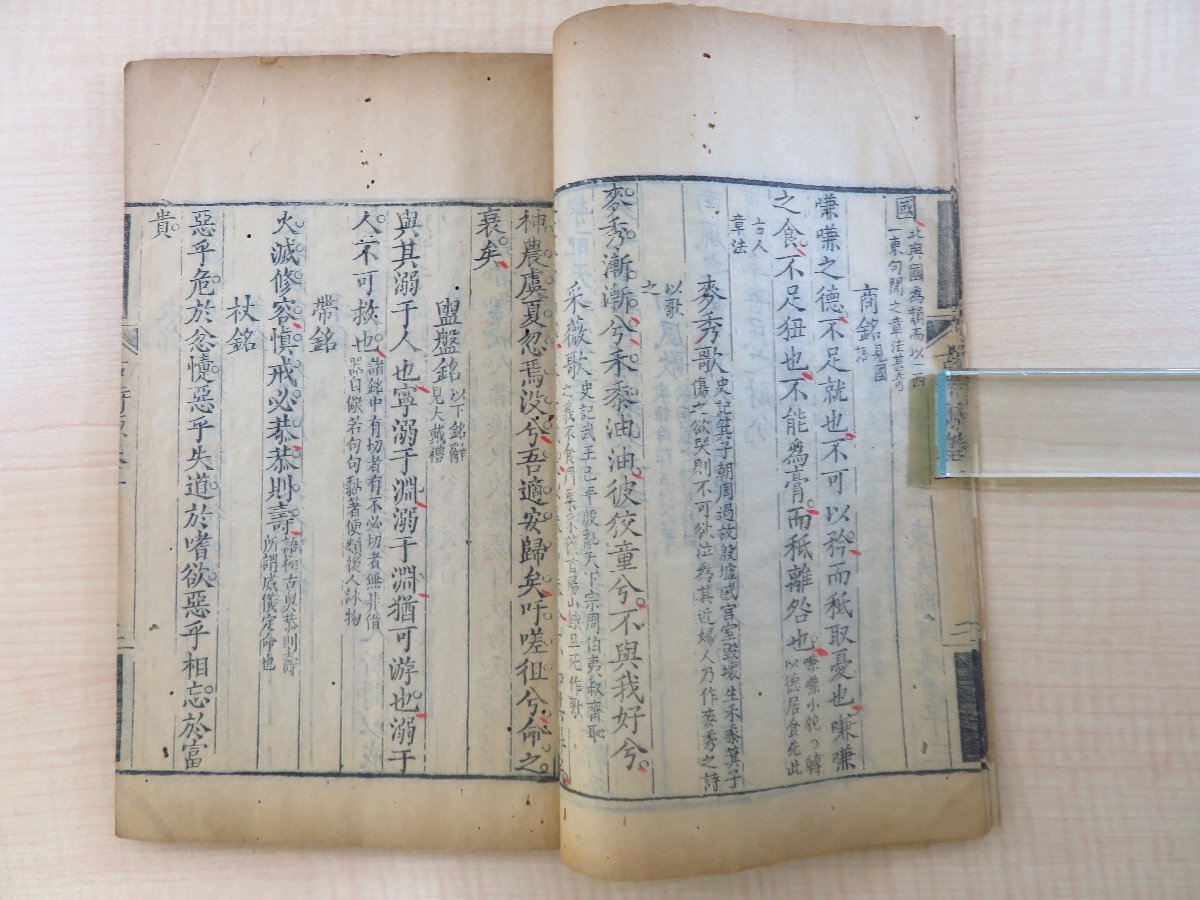 國 北與國爲韻而以一西
一東句間之章法甚奇
商銘 見國語
嗛嗛之德不足就也不可以矜而秪取憂也嗛嗛
之食不足狃也不能爲膏而秪離咎也 嗛嗛小貌〇轉
以德居食先此
古人
章法
麥秀歌 史記箕子朝周過故殷墟感宫室毀壞生禾黍箕子
傷之欲哭則不可欲泣爲其近婦人乃作麥秀之詩
以歌
之
麥秀漸漸兮禾黍油油彼狡童兮不與我好兮
采薇歌 史記武王已平殷亂天下宗周伯夷叔齊恥
之義不食周粟采薇首陽山餓且死作歌
神農虞夏忽焉没兮吾適安歸矣吁嗟徂兮命之
衰矣
盥盤銘 以下銘辭
見大戴禮
與其溺于人也寧溺于淵溺于淵猶可游也溺于
人不可救也 諸銘中有切者有不必切者無非借
器自儆若句句黏著便類後人詠物
帶銘
火滅修容慎戒必恭恭則壽 語極古奥恭則壽
所謂威儀定命也
杖銘
惡乎危於忿懥惡乎失道於嗜欲惡乎相忘於富
貴